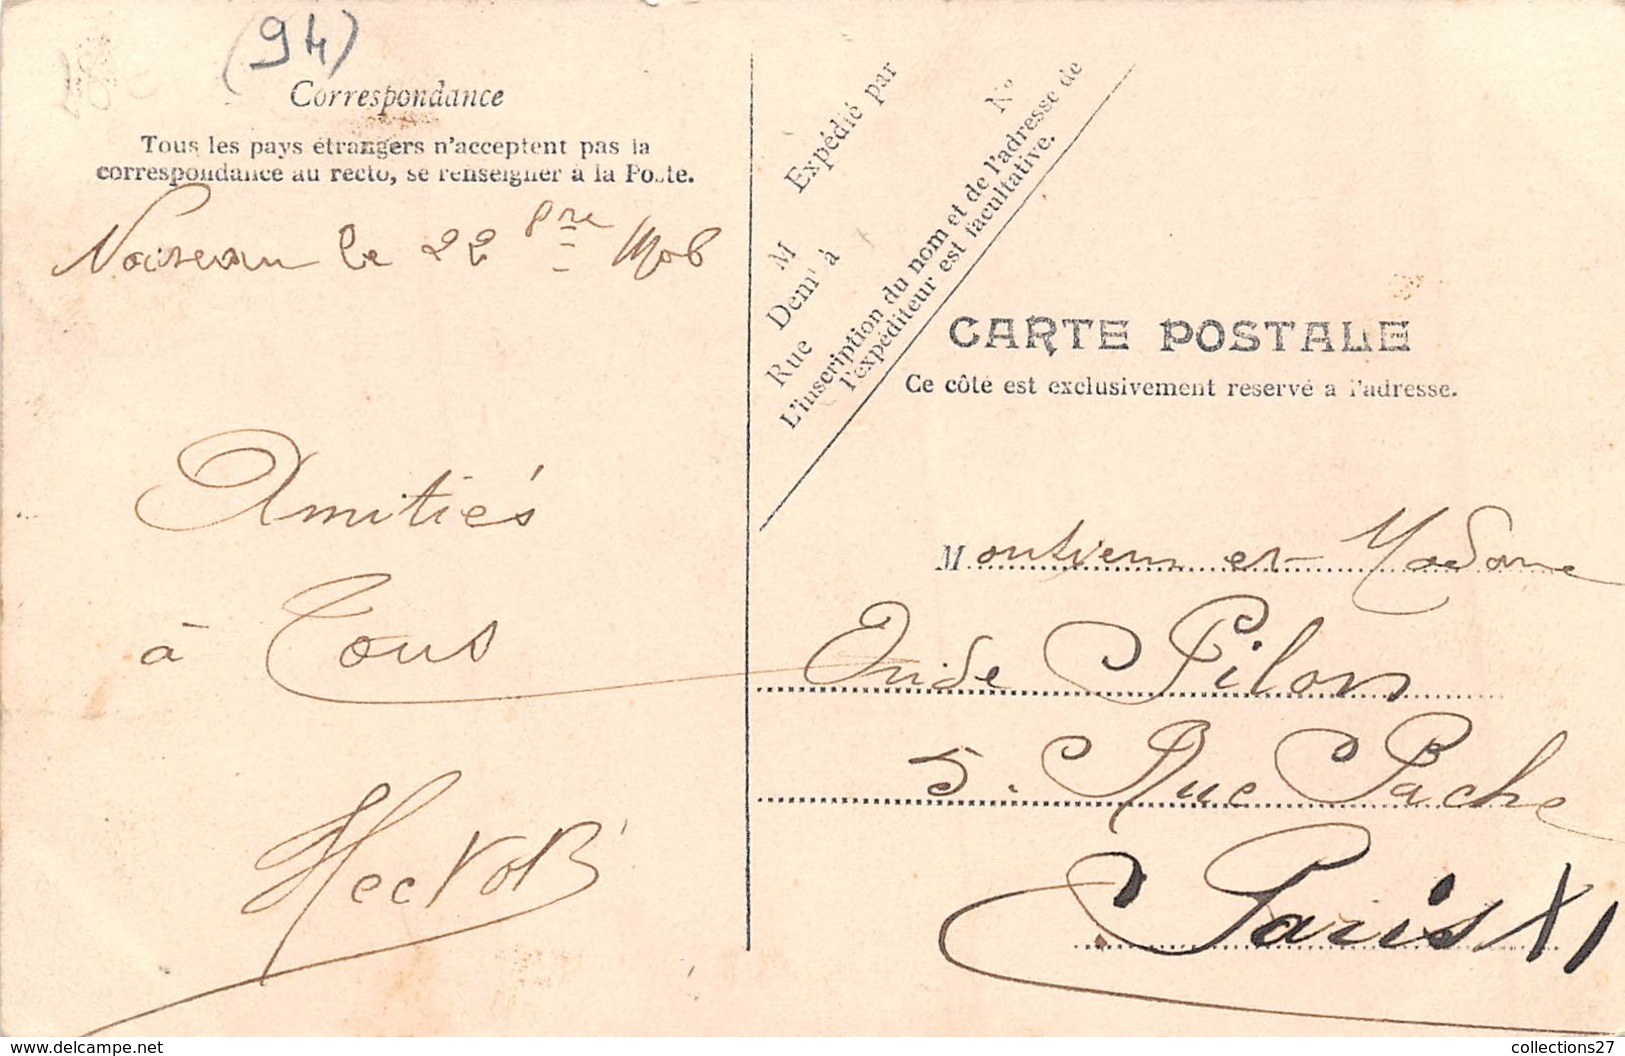 (94)
Correspondance
Tous les pays étrangers n'acceptent pas la
correspondance au recto, se renseigner à la Poste.
Noiseau le 22 8bre 1906
Amitiés
à Tous
Hector B
Expédié par
M
Demt à
Rue
N°
L'inscription du nom et de l'adresse de
l'expéditeur est facultative.
CARTE POSTALE
Ce côté est exclusivement reservé a l'adresse.
Monsieur et Madame
Ovide Pilon
5. Rue Pache
Paris XI
collections27